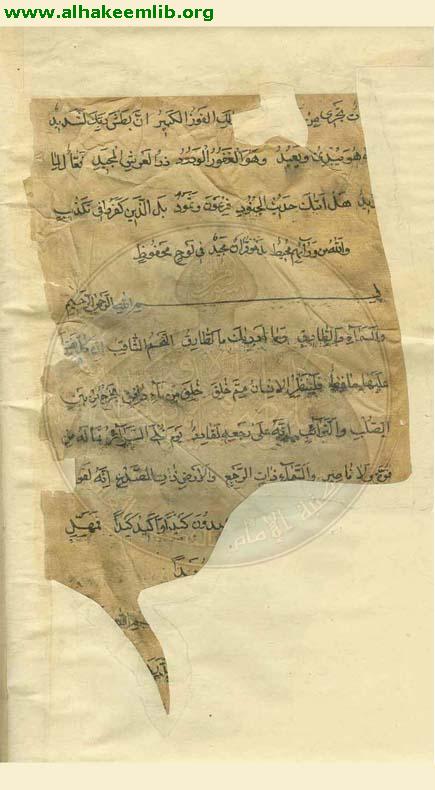 www.alhakeemlib.org
تجري من لك الفوز الكبير ان بطش ربك لشديد
هو يبدئ ويعيد وهو الغفور الودود ذو العرش المجيد فعال لما
هل اتيك حديث الجنود فرعون وثمود بل الذين كفروا في تكذيب
والله من ورآئهم محيط بل هو قرآن مجيد في لوح محفوظ
بسم الله الرحمن الرحيم
والسمآء والطارق وما ادريك ما الطارق النجم الثاقب ان كل نفس
عليها حافظ فلينظر الانسان مم خلق خلق من مآء دافق يخرج من بين
الصلب والترآئب انه على رجعه لقادر يوم تبلى السرآئر فما له من
قوة ولا ناصر والسمآء ذات الرجع والارض ذات الصدع انه لقو
يدون كيدا واكيد كيدا فمهل
يدا